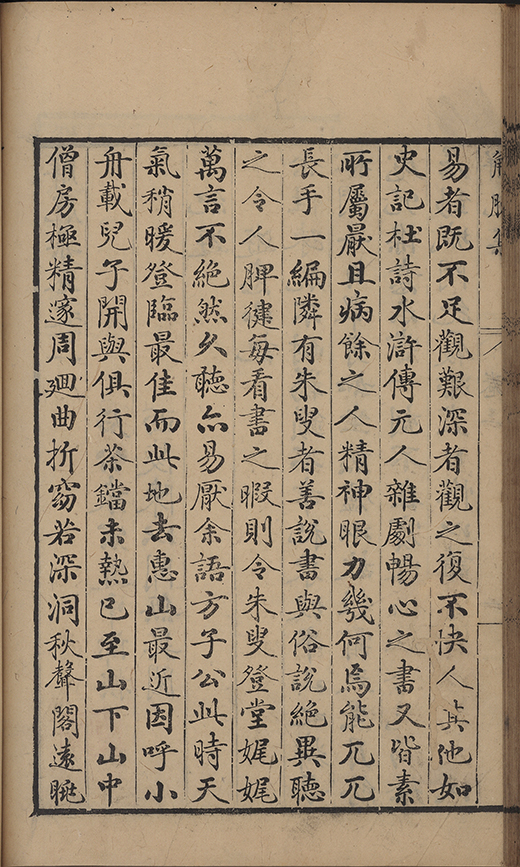 解脫集
易者既不足觀艱深者觀之復不快人其他如
史記杜詩水滸傳元人雜劇暢心之書又皆素
所屬厭且病餘之人精神眼力幾何焉能兀兀
長手一編隣有朱叟者善說書與俗說絕異聽
之令人脾健每看書之暇則令朱叟登堂娓娓
萬言不絕然久聽亦易厭余語方子公此時天
氣稍暖登臨最佳而此地去惠山最近因呼小
舟載兒子開與俱行茶鐺未熱已至山下山中
僧房極精邃周廻曲折窈若深洞秋聲閣遠眺